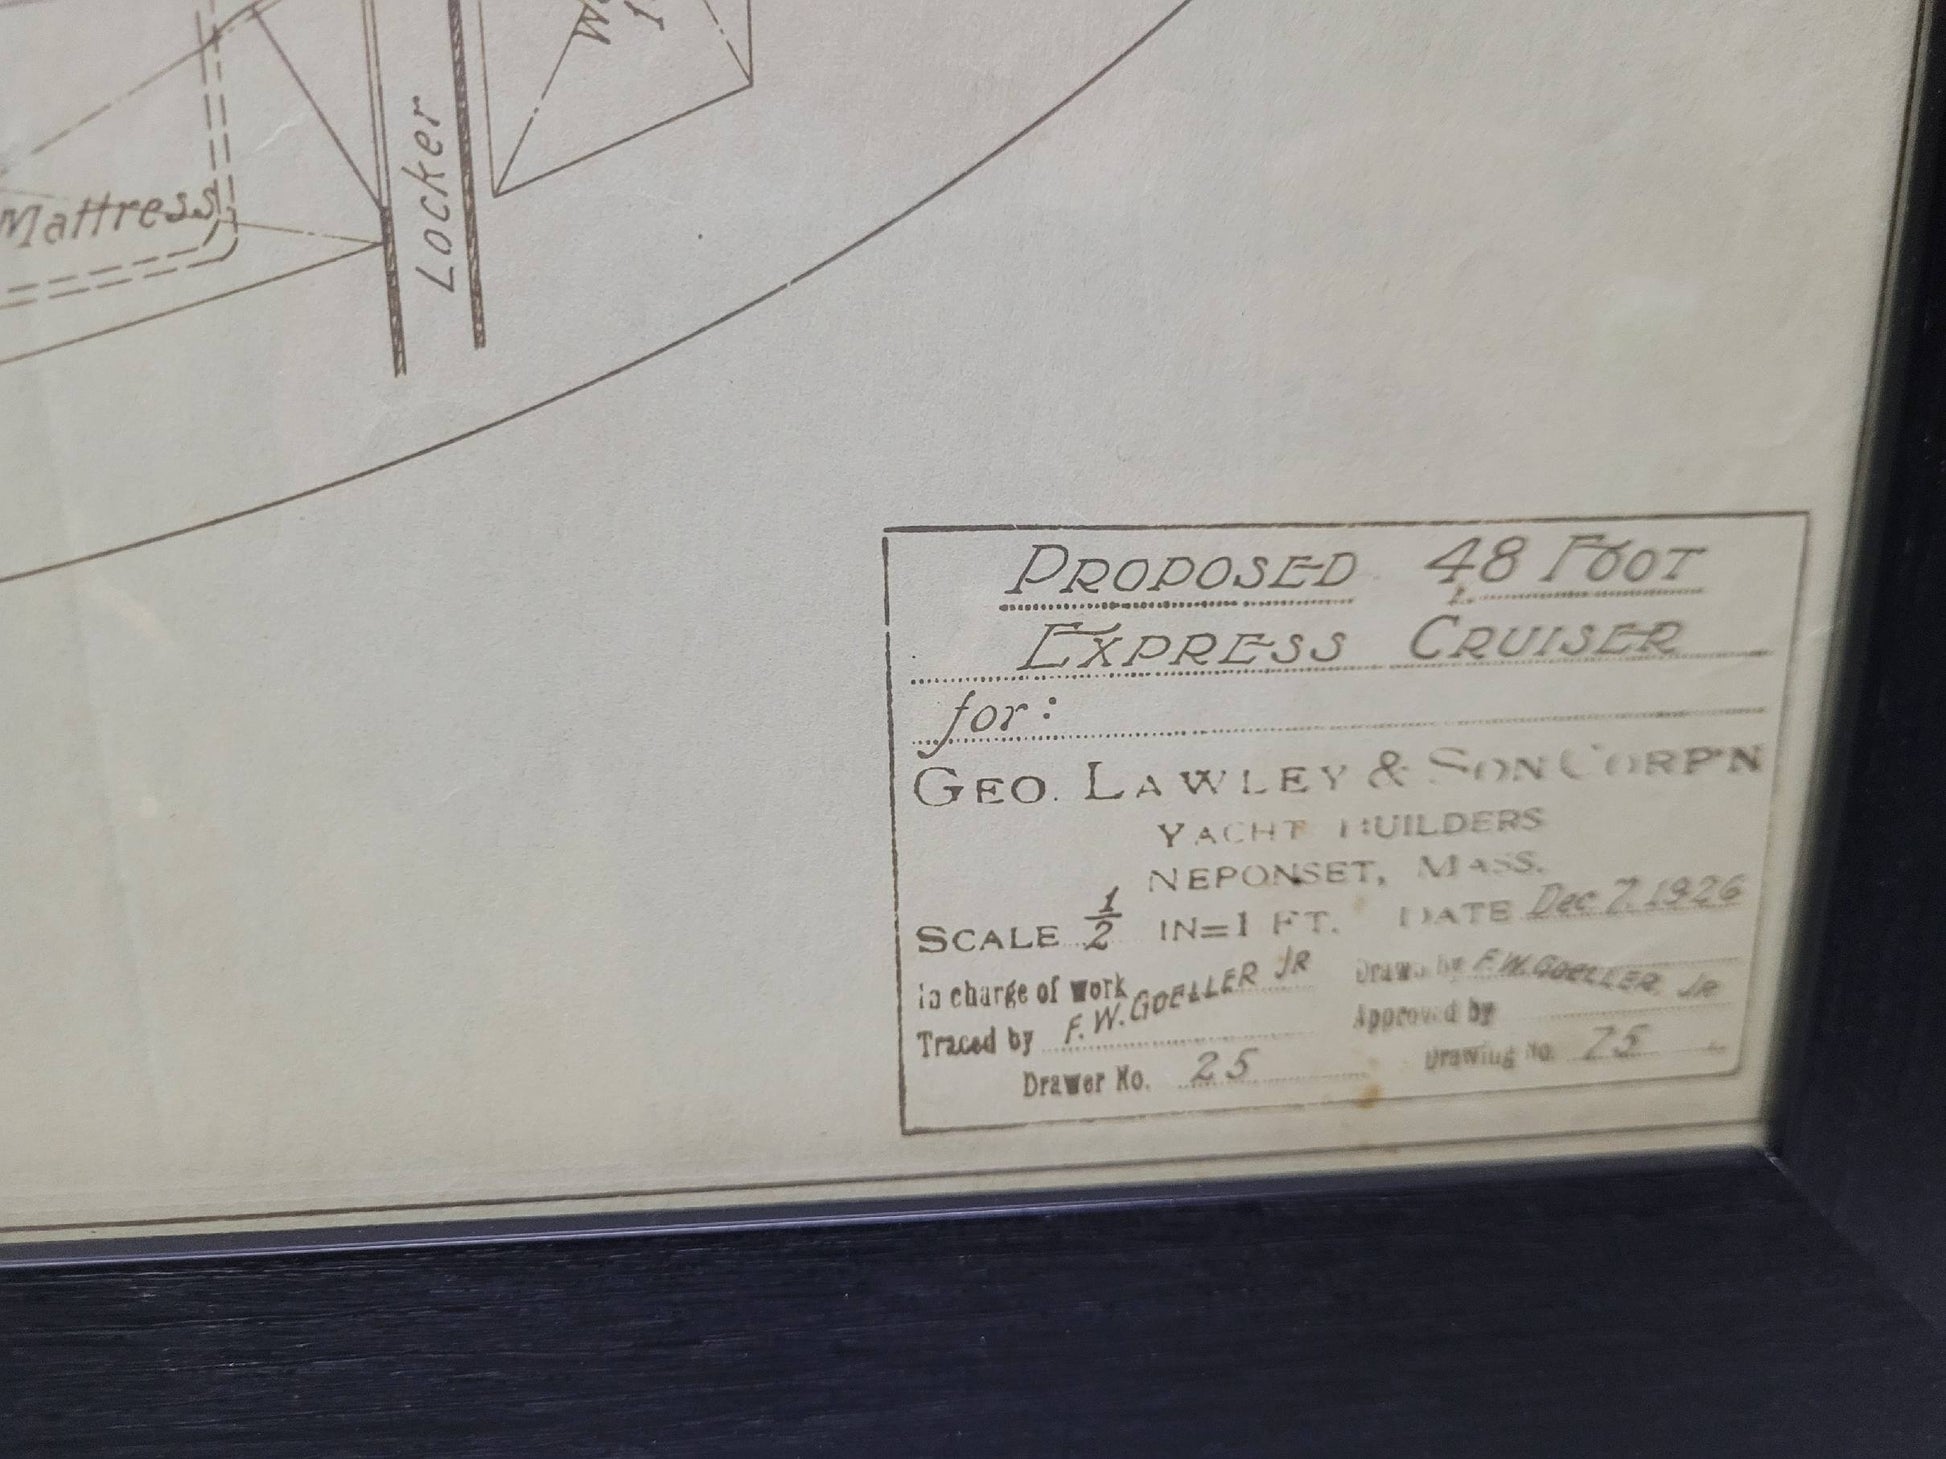 Mattress
Locker
PROPOSED 48 FOOT
EXPRESS CRUISER
for:
GEO. LAWLEY & SON CORP'N
YACHT BUILDERS
NEPONSET, MASS.
SCALE 1/2 IN=1 FT. DATE Dec 7. 1926
In charge of work F. W. GOELLER JR Drawn by F. W. GOELLER, JR
Traced by Approved by
Drawer No. 25 Drawing No.